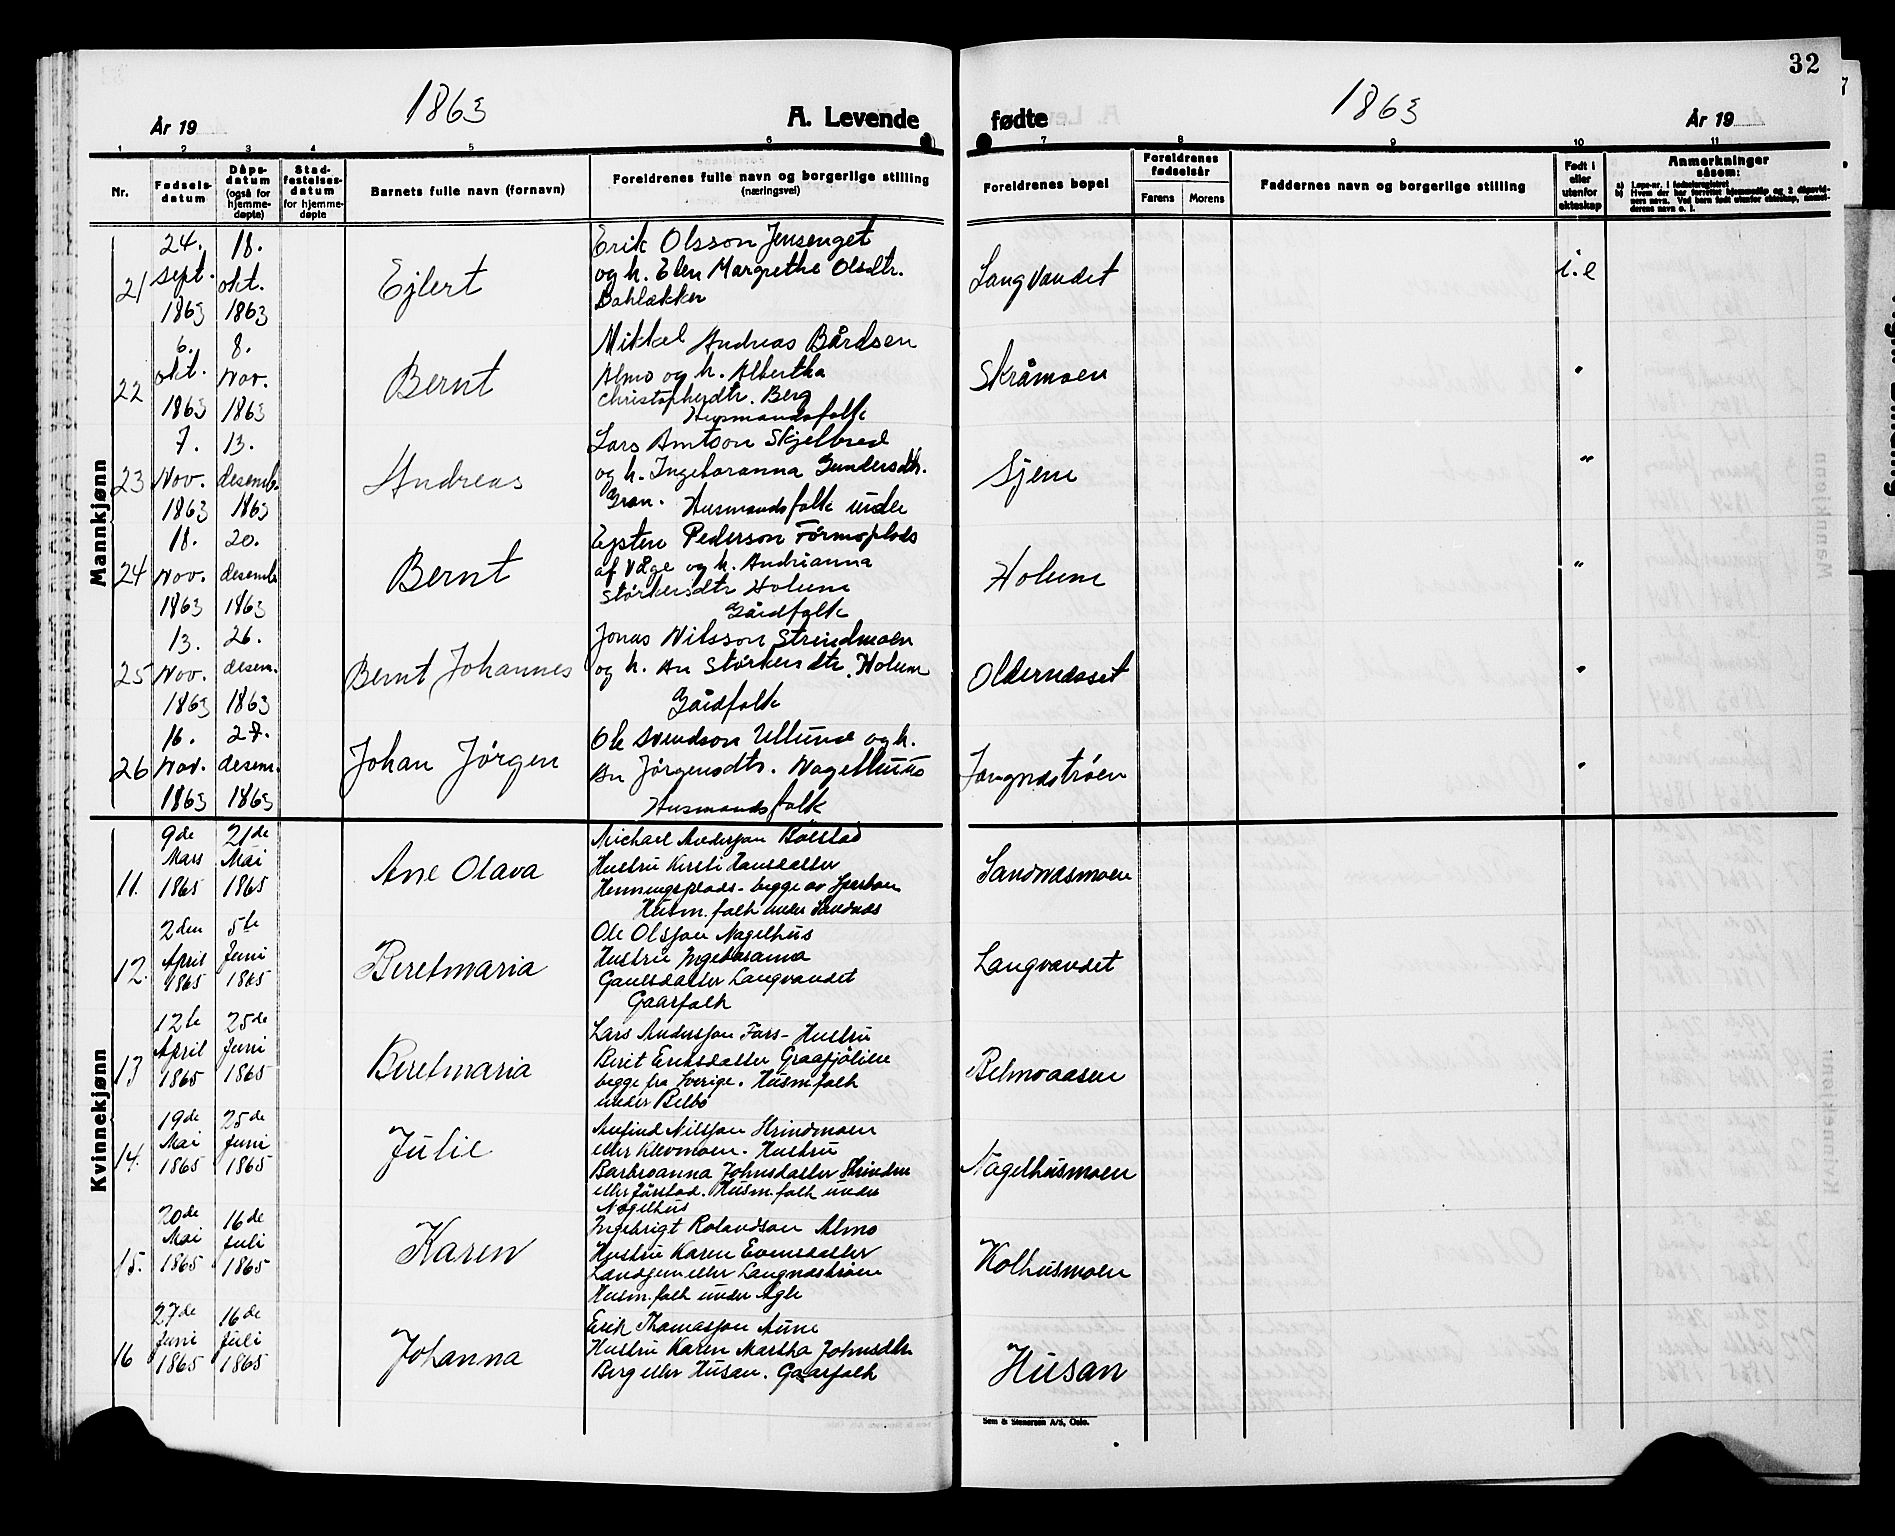 32
1863
1863
År 19
A. Levende
fødte
År 19
1 2 3 4 5 6 7 8 9 10 11
Nr.
Fødsels-
datum
Dåps-
datum
(også for
hjemme-
døpte)
Stad-
festelses-
datum
for hjemme-
døpte
Barnets fulle navn (fornavn)
Foreldrenes fulle navn og borgerlige stilling
(næringsvei)
Foreldrenes bopel
Foreldrenes
fødselsår
Farens
Morens
Faddernes navn og borgerlige stilling
Født i
eller
utenfor
ekteskap
Anmerkninger
såsom:
Mannkjønn
21
24.
sept.
1863
18.
okt.
1863
Ejlert
Erik Olsson Jensenget
og h. Elen Margrethe Olsdtr.
Bahlakker
Langvandet
i.e
22
6.
okt.
1863
8.
Nov.
1863
Bernt
Mikkel Andreas Bårdsen
Almo og h. Albertha
Christophersdtr. Berg
Husmandsfolk
Skråmoen
"
23
7.
Nov.
1863
13.
desemb.
1863
Andreas
Lars Arntson Skjelbred
og h. Ingeboranna Gundersdtr.
Gran. Husmandsfolk unde
Sjem
"
24
18.
Nov.
1863
20.
desemb.
1863
Bernt
Ejsten Pederson Formoplads
af Våge og h. Andrianna
Størkersdtr Holum
Gårdfolk
Holum
"
25
13.
Nov.
1863
26.
desem.
1863
Bernt Johannes
Jonas Nilsson Strindmoen
og h. An Størkersdtr. Holum
Gårdfolk
Oldernesset
"
26
16.
Nov.
1863
27.
desem.
1863
Johan Jørgen
Ole Svendson Ullund og h.
An Jørgensdtr. Nagelhuus
Husmandsfolk
Langnæstrøen
"
Kvinnekjønn
11.
9de
Mars
1865
21de
Mai
1865
Ane Olava
Michael Andersjon Bolstad
Hustru Kirsti Hansdatter
Henningsplads - begge av Sparbuen
Husm.folk under Sandnæs
Sandnæsmoen
12.
2den
April
1865
5te
Juni
1865
Beretmaria
Ole Olsjon Nagelhus
Hustru Ingeboranna
Gaulsdatter Langvandet
Gaarfolk
Langvandet
13
12te
April
1865
25de
Juni
1865
Beretmaria
Lars Andersjon Fors - Hustru
Berit Eriksdatter Graafjølien
begge fra Sverige. Husm.folk
under Belbo
Belmoaasen
14.
19de
Mai
1865
25de
Juni
1865
Julie
Anfind Nilsjon Strindmoen
eller Klevmoen. Hustru
Barbroanna Johnsdatter Strinden
eller Jørstad. Husm.folk under
Nagelhus
Nagelhusmoen
15.
20de
Mai
1865
16de
Juli
1865
Karen
Ingebrigt Rolandson Almo
Hustru Karen Evensdatter
Landsem eller Langnæstrøen
Husm.folk under Agle
Kolhusmoen
16
27de
Juni
1865
16de
Juli
1865
Johanna
Erik Thomasjon Aune
Hustru Karen Martha Johnsdtr
Berg eller Husan. Gaarfolk
Husan
Sem & Stenersen A/S, Oslo.